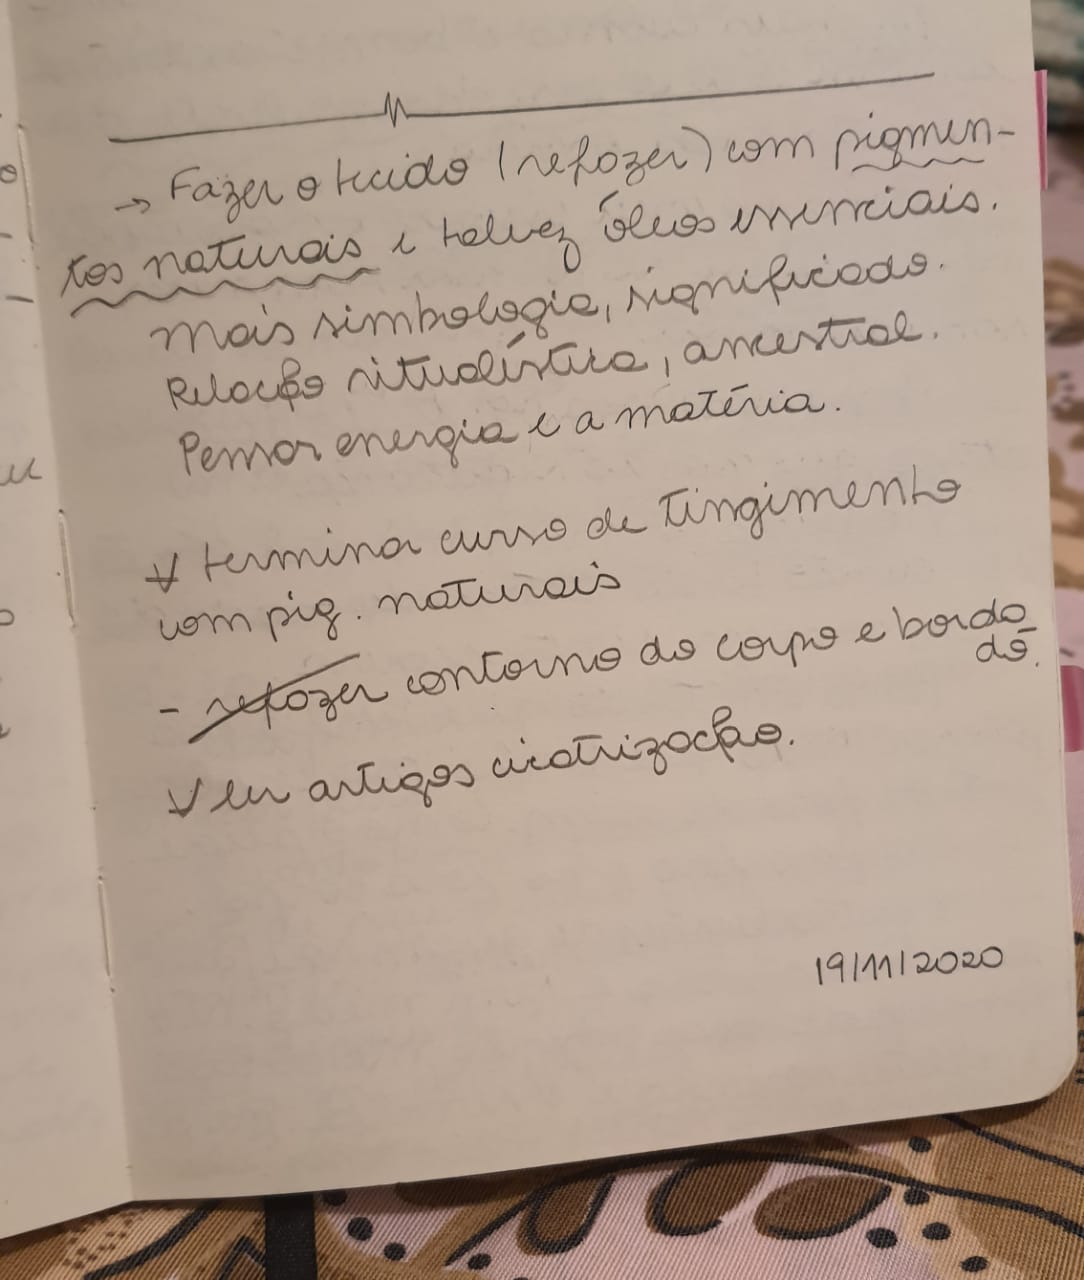 → Fazer o tecido (refazer) com pigmen-
tos naturais e talvez óleos essenciais.
Mais simbologia, significado.
Relação ritualística, ancestral.
Pensar energia e a matéria.
termina curso de tingimento
com pig. naturais
- refazer contorno do corpo e borda
dō.
ler artigos cicatrização.
19/11/2020